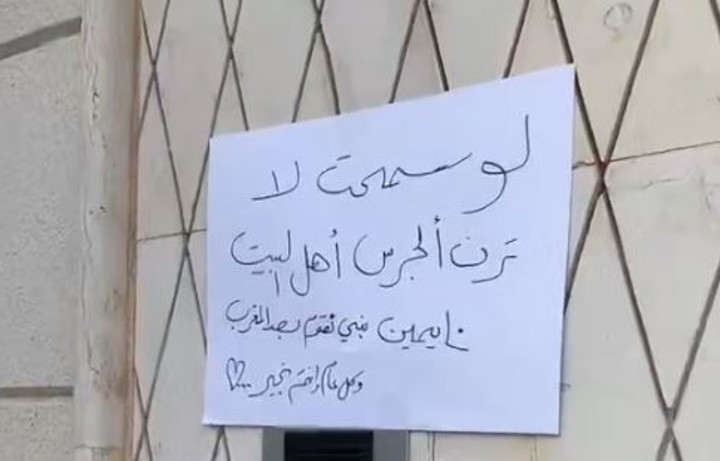 لو سمحت لا
ترن ألجرس أهل البيت
نايمين بني نقوم بعد المغرب
وكل عام وانتم بخير